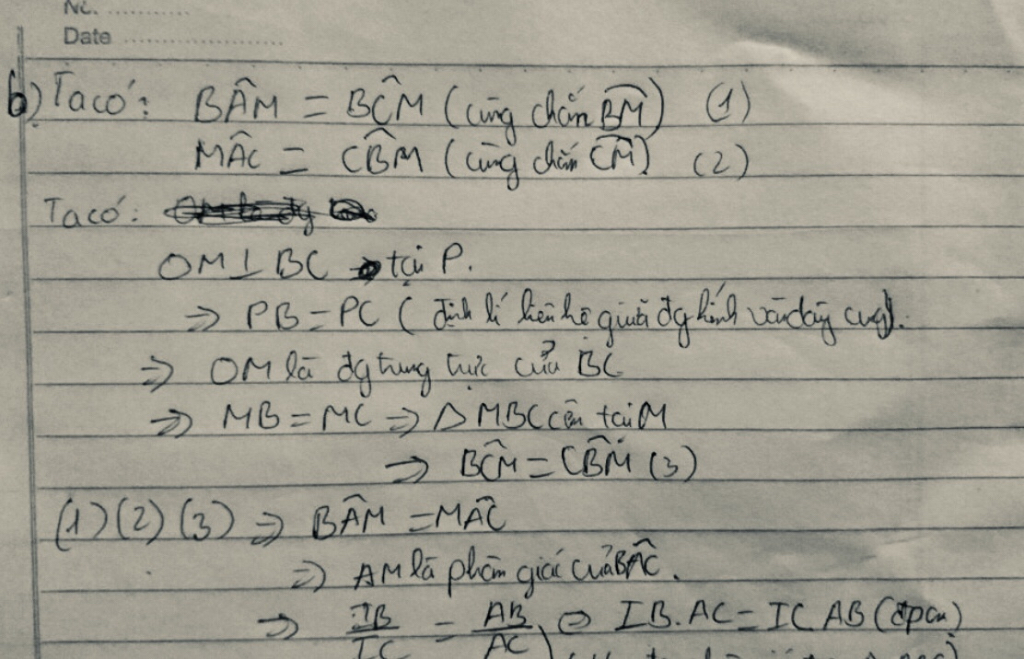 No. ............
Date ........................
b) Ta có: BÂM = BĈM (cùng chắn B͡M) (1)
MÂC = CB̂M (cùng chắn C͡M) (2)
Ta có:
OM ⊥ BC tại P.
=> PB = PC (định lí liên hệ giữa đg kính và dây cung).
=> OM là đg trung trực của BC
=> MB = MC => Δ MBC cân tại M
=> BĈM = CB̂M (3)
(1) (2) (3) => BÂM = MÂC
=> AM là phân giác của BÂC.
=> IB/IC = AB/AC <=> IB.AC = IC AB (đpcm)